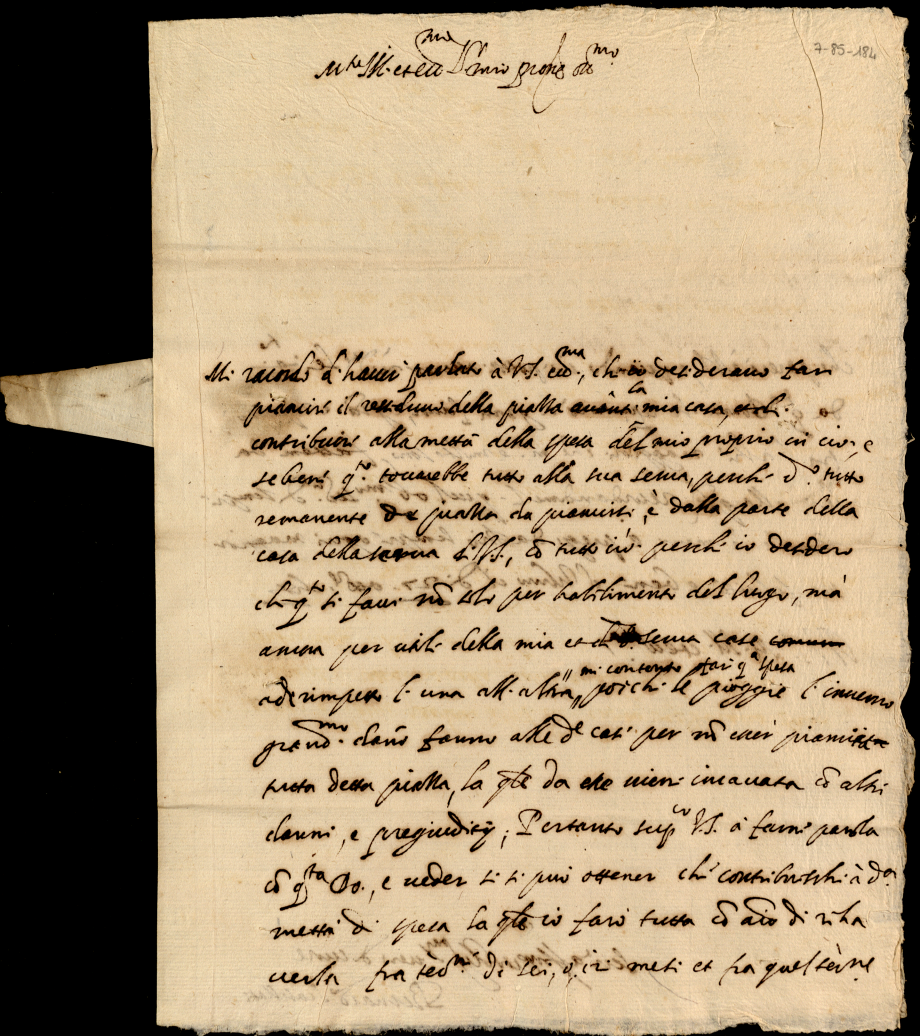 7-85-184
M.to Ill.
Mi racordo d'haver parlato à V.S. ecc.ma, ch'io desideravo far
pianire il residuo della piazza avanti la mia casa, et di
contribuire alla mettà della spesa del mio proprio in ciò, e
se bene q.to tocarebbe tutto alla sua serva, perche d.o tutto
remanente de piazza da pianirsi, è dalla parte della
casa della serva di V.S., cō tutto ciò perche io desidero
che q.to si facci nō solo per habilimento del luogo, mà
ancora per utile della mia et serva case
aderimpetto l'una all'altra, mi contento far q.a spesa
poiche le pioggie l'inverno
grand.mo danno fanno alle d.e case per nō esser pianita
tutta detta piazza, la qle da esse viene incavata cō altri
danni, e pregiuditij; Pertanto sup.co V.S. à farne parola
cō q.sta, e veder se si può ottener che contribuischi à d.a
mettà di spesa la qle io farò tutta cō di riha
verla fra di sei, mesi et fra quel